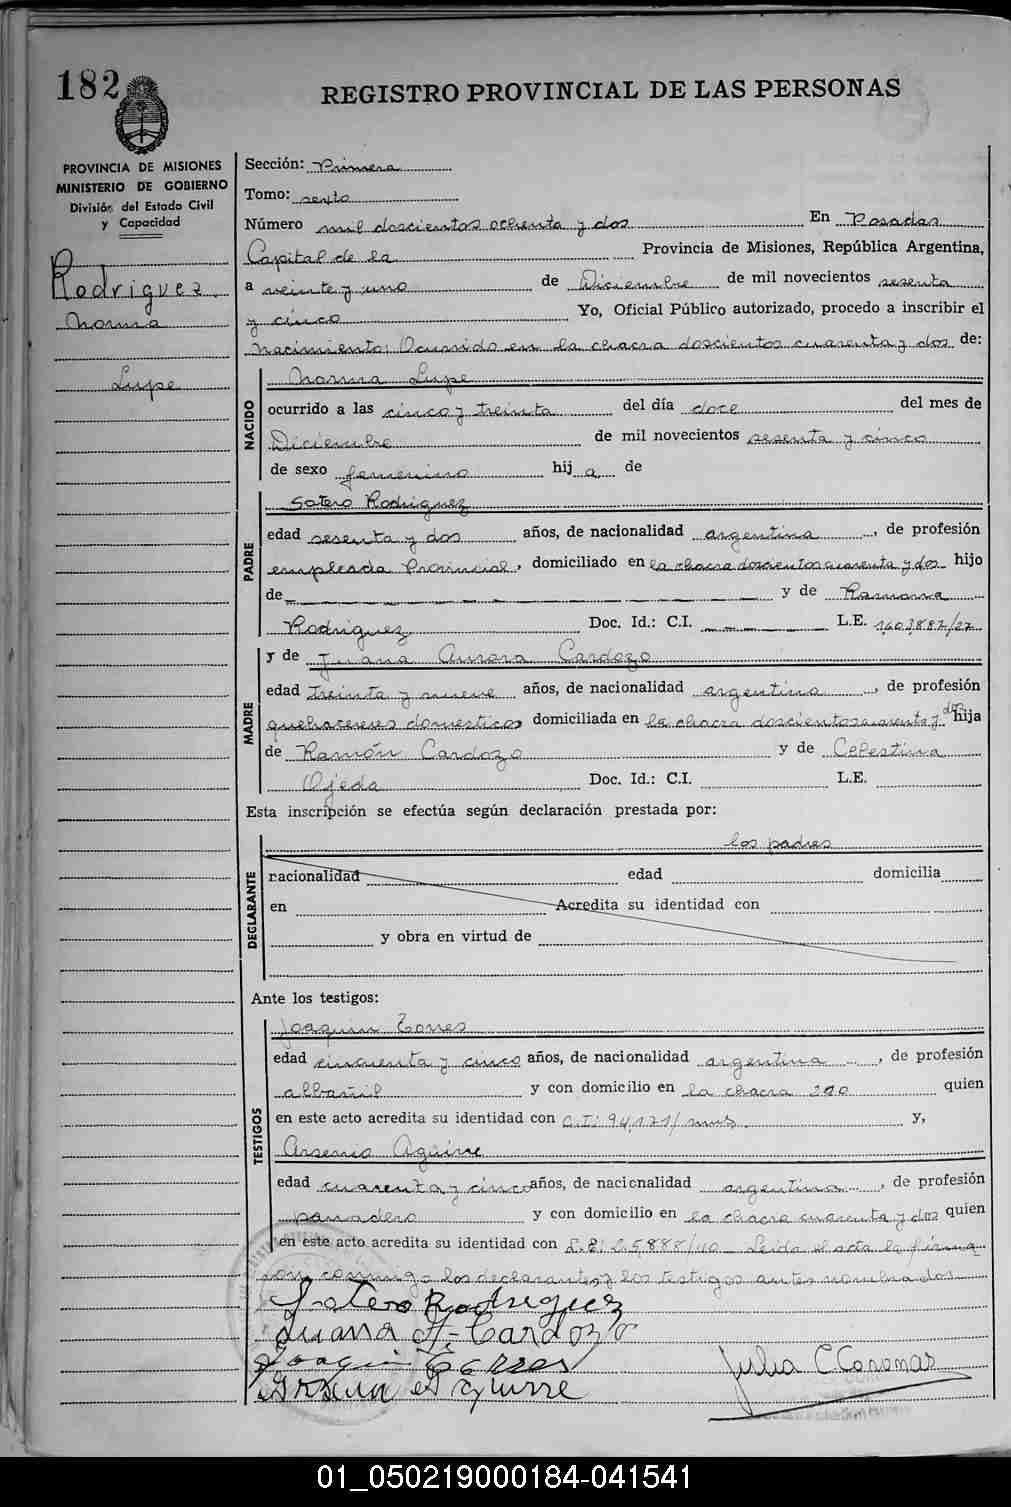 182
REGISTRO PROVINCIAL DE LAS PERSONAS
PROVINCIA DE MISIONES
MINISTERIO DE GOBIERNO
División del Estado Civil
y Capacidad
Rodriguez
Norma
Lupe
Sección: Primera
Tomo: sexto
Número mil doscientos ochenta y dos En Posadas
Capital de la Provincia de Misiones, República Argentina,
a veinte y uno de Diciembre de mil novecientos sesenta
y cinco Yo, Oficial Público autorizado, procedo a inscribir el
nacimiento: Ocurrido en la chacra doscientos cuarenta y dos de:
NACIDO
Norma Lupe
ocurrido a las cinco y treinta del día doce del mes de
Diciembre de mil novecientos sesenta y cinco
de sexo femenino hij a de
PADRE
Sotero Rodriguez
edad sesenta y dos años, de nacionalidad argentina, de profesión
empleado Provincial, domiciliado en la chacra doscientos cuarenta y dos hijo
de — y de Ramona
Rodriguez Doc. Id.: C.I. — L.E. 1.603.887/27
MADRE
y de Juana Aurora Cardozo
edad treinta y nueve años, de nacionalidad argentina, de profesión
quehaceres domesticos domiciliada en la chacra doscientos cuarenta y dos hija
de Ramón Cardozo y de Celestina
Ojeda Doc. Id.: C.I. L.E.
Esta inscripción se efectúa según declaración prestada por:
DECLARANTE
los padres
nacionalidad edad domicilia
en Acredita su identidad con
y obra en virtud de
Ante los testigos:
TESTIGOS
Joaquin Torres
edad cincuenta y cinco años, de nacionalidad argentina, de profesión
albañil y con domicilio en la chacra 290 quien
en este acto acredita su identidad con C.I: 94.171/ y,
Arsenio Aguirre
edad cuarenta y cinco años, de nacionalidad argentina, de profesión
panadero y con domicilio en la chacra cuarenta y dos quien
en este acto acredita su identidad con Leida el acta la firma
con conmigo los declarantes y los testigos antes nombrados
Sotero Rodriguez
Juana A. Cardozo
Joaquin Torres
Arsenio Aguirre
Julia C. Coronas
01_050219000184-041541